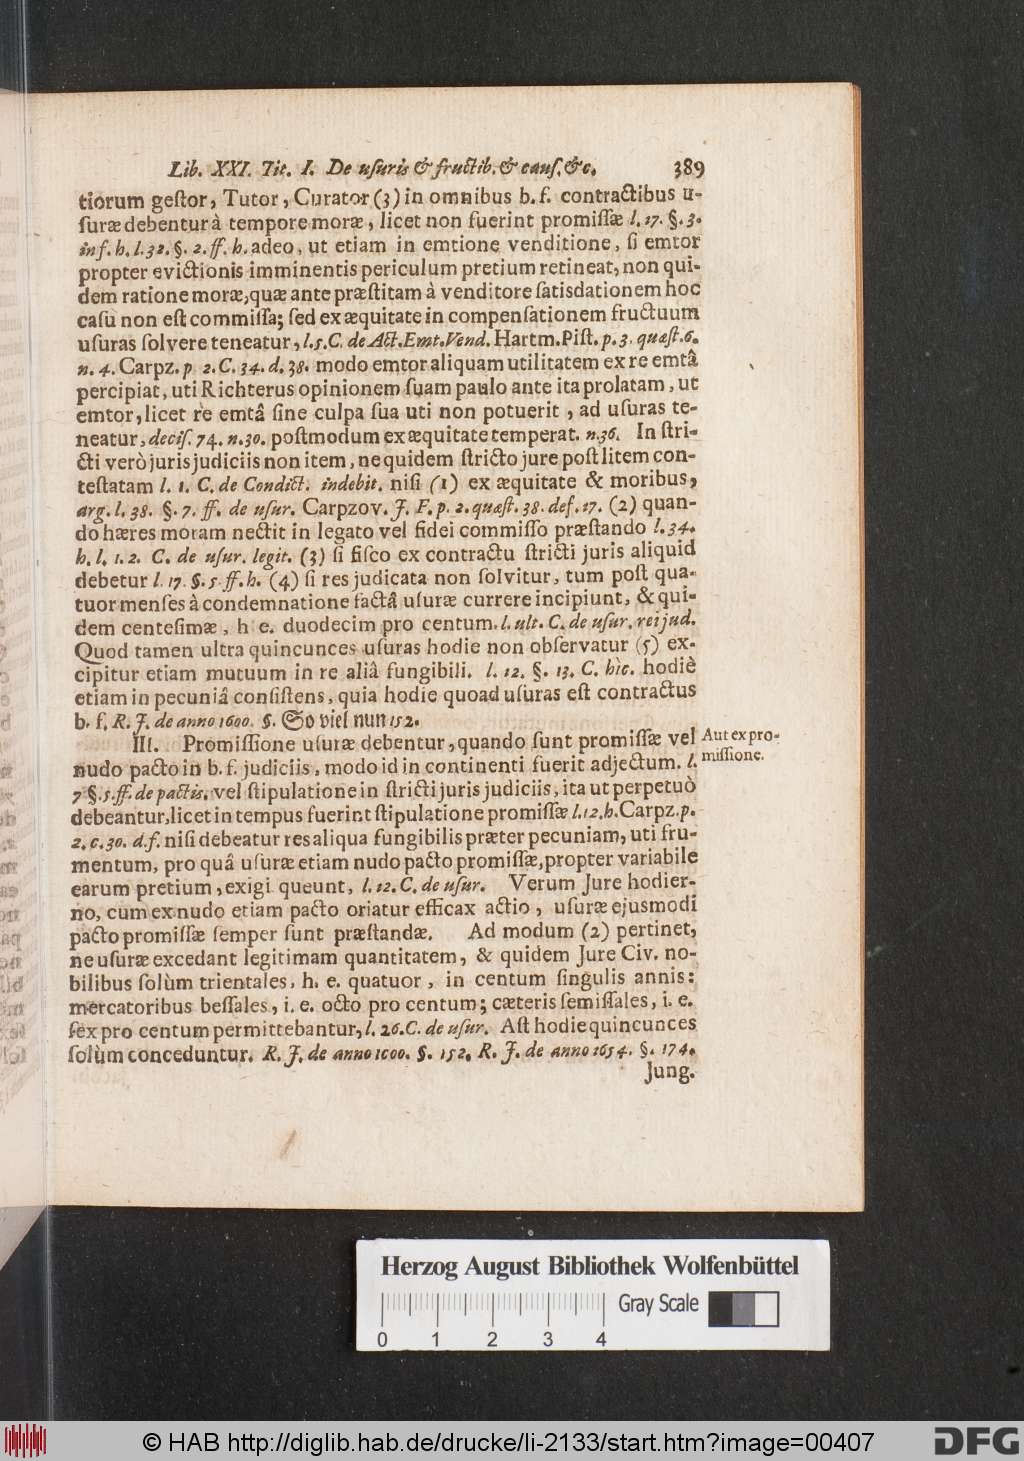 Lib. XXI. Tit. I. De uſuris & fructib. & cauſ. &c. 389
tiorum geſtor, Tutor, Curator (3) in omnibus b. f. contractibus u-
ſuræ debentur à tempore moræ, licet non fuerint promiſſæ l. 17. §. 3.
inf. h. l. 32. §. 2. ff. h. adeo, ut etiam in emtione venditione, ſi emtor
propter evictionis imminentis periculum pretium retineat, non qui-
dem ratione moræ, quæ ante præſtitam à venditore ſatisdationem hoc
caſu non eſt commiſſa; ſed ex æquitate in compenſationem fructuum
uſuras ſolvere teneatur, l. 5. C. de Act. Emt. Vend. Hartm. Piſt. p. 3. quæſt. 6.
n. 4. Carpz. p. 2. C. 34. d. 38. modo emtor aliquam utilitatem ex re emtâ
percipiat, uti Richterus opinionem ſuam paulo ante ita prolatam, ut
emtor, licet re emtâ ſine culpa ſua uti non potuerit, ad uſuras te-
neatur, deciſ. 74. n. 30. poſtmodum ex æquitate temperat. n. 36. In ſtri-
cti verò juris judiciis non item, ne quidem ſtricto jure poſt litem con-
teſtatam l. 1. C. de Condict. indebit. niſi (1) ex æquitate & moribus,
arg. l. 38. §. 7. ff. de uſur. Carpzov. J. F. p. 2. quæſt. 38. def. 17. (2) quan-
do hæres moram nectit in legato vel fidei commiſſo præſtando l. 34.
h. l. 1. 2. C. de uſur. legit. (3) ſi fiſco ex contractu ſtricti juris aliquid
debetur l. 17. §. 5. ff. h. (4) ſi res judicata non ſolvitur, tum poſt qua-
tuor menſes à condemnatione factâ uſuræ currere incipiunt, & qui-
dem centeſimæ, h e. duodecim pro centum. l. ult. C. de uſur. rei jud.
Quod tamen ultra quincunces uſuras hodie non obſervatur (5) ex-
cipitur etiam mutuum in re aliâ fungibili. l. 12. §. 13. C. hìc. hodiè
etiam in pecuniâ conſiſtens, quia hodie quoad uſuras eſt contractus
b. f. R. J. de anno 1600. §. So viel nun 152.
III. Promiſſione uſuræ debentur, quando ſunt promiſſæ vel
Aut ex pro-
miſſione.
nudo pacto in b. f. judiciis, modo id in continenti fuerit adjectum. l.
7 §. 5. ff. de pactis. vel ſtipulatione in ſtricti juris judiciis, ita ut perpetuò
debeantur, licet in tempus fuerint ſtipulatione promiſſæ l. 12. h. Carpz. p.
2. c. 30. d. f. niſi debeatur res aliqua fungibilis præter pecuniam, uti fru-
mentum, pro quâ uſuræ etiam nudo pacto promiſſæ, propter variabile
earum pretium, exigi queunt, l. 12. C. de uſur. Verum Jure hodier-
no, cum ex nudo etiam pacto oriatur efficax actio, uſuræ ejusmodi
pacto promiſſæ ſemper ſunt præſtandæ. Ad modum (2) pertinet,
ne uſuræ excedant legitimam quantitatem, & quidem Jure Civ. no-
bilibus ſolùm trientales, h. e. quatuor, in centum ſingulis annis:
mercatoribus beſſales, i. e. octo pro centum; cæteris ſemiſſales, i. e.
ſex pro centum permittebantur, l. 26. C. de uſur. Aſt hodie quincunces
ſolùm conceduntur. R. J. de anno 1600. §. 152. R. J. de anno 1654. §. 174.
Jung.
Herzog August Bibliothek Wolfenbüttel
Gray Scale
0 1 2 3 4
© HAB http://diglib.hab.de/drucke/li-2133/start.htm?image=00407
DFG